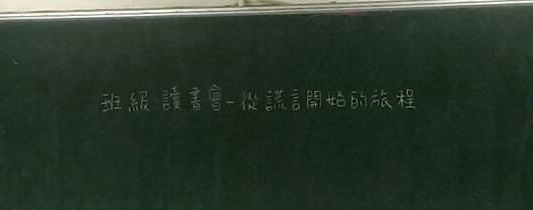 班級讀書會-從謊言開始的旅程